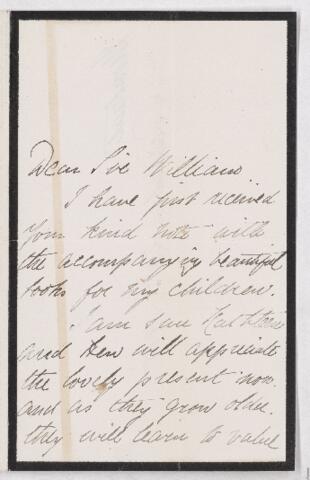 Dear Sir William
I have just received
your kind note with
the accompanying beautiful
books for my children.
I am sure Kathleen
and Hew will appreciate
the lovely present now.
and as they grow older.
they will learn to value